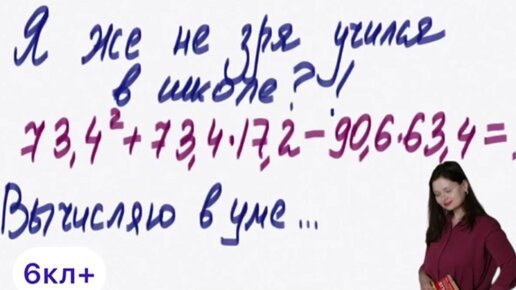 Я же не зря учился
в школе?!
73,4²+73,4·17,2-90,6·63,4=
Вычисляю в уме...
6кл+